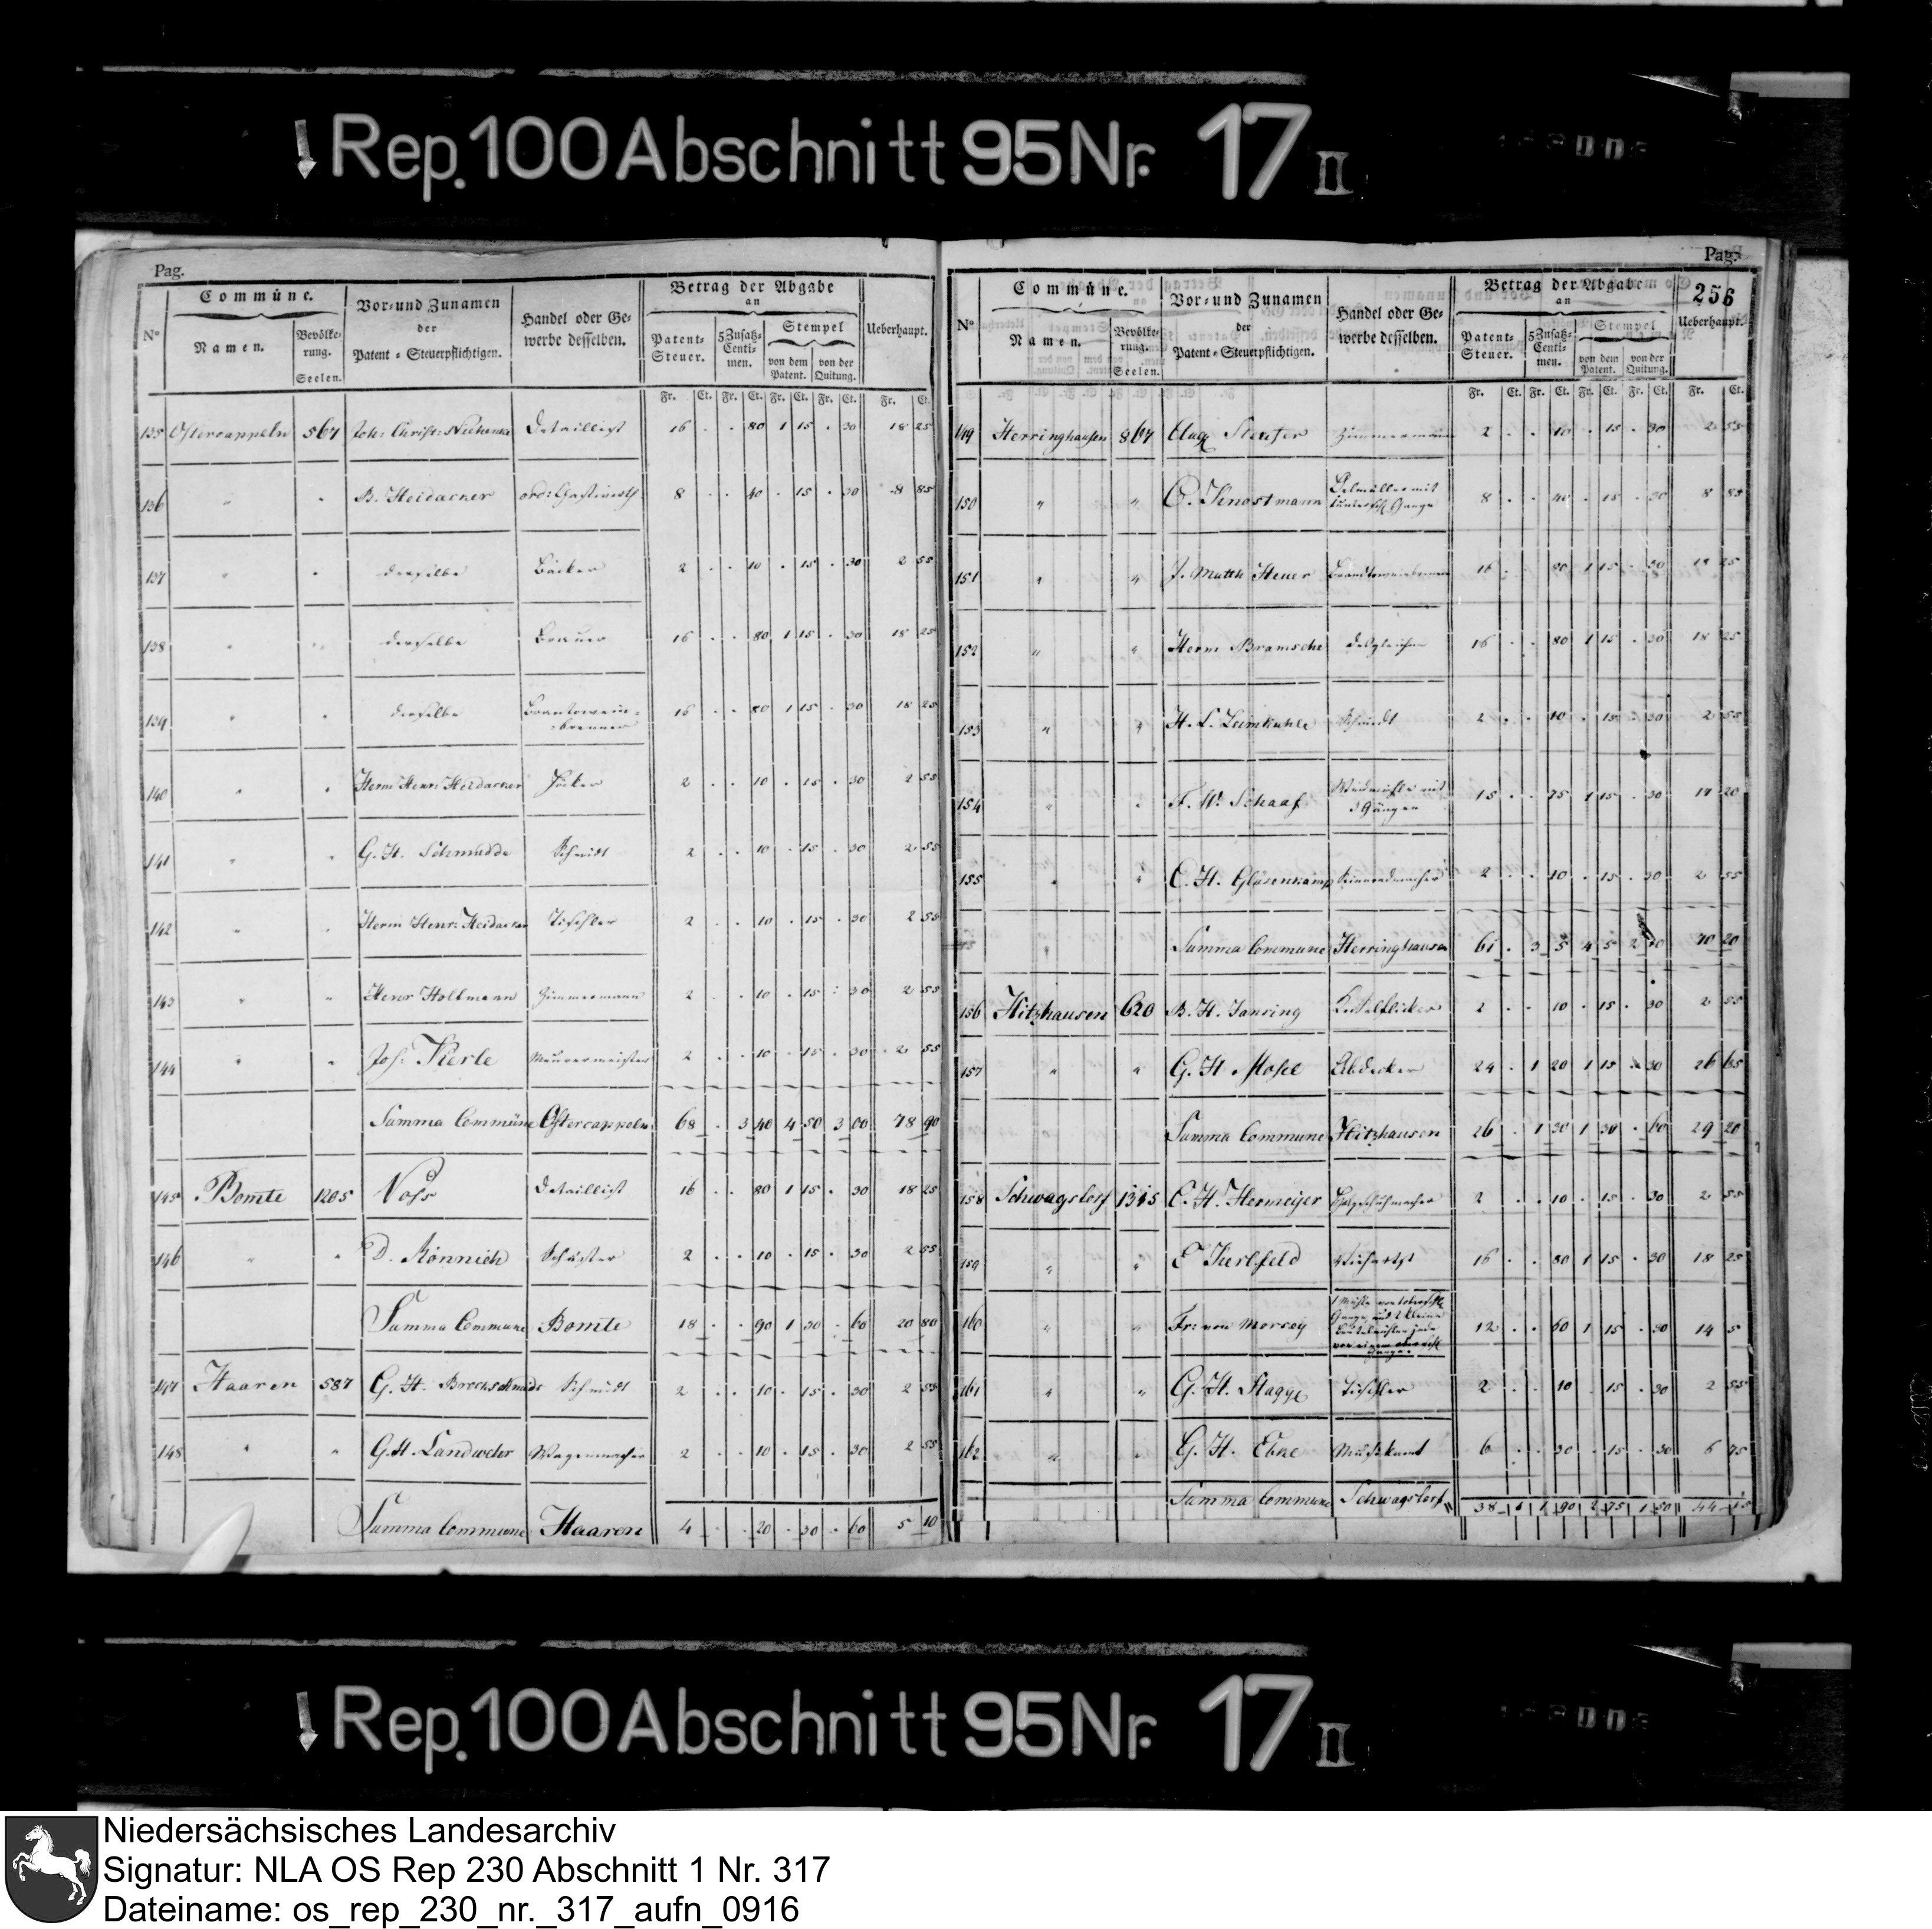 Rep. 100 Abschnitt 95 Nr. 17 II
Pag.
No Commüne. Namen. Bevölkerung. Seelen. Vor- und Zunamen der Patent-Steuerpflichtigen. Handel oder Gewerbe desselben. Betrag der Abgabe an Patent-Steuer. 5 Zusatz-Centimen. Stempel von dem Patent. von der Quitung. Ueberhaupt.
Fr. Ct. Fr. Ct. Fr. Ct. Fr. Ct. Fr. Ct.
135 Ostercappeln 567 Joh: Christ: Detaillist 16 . . 80 1 15 . 30 18 25
136 " " B. Heidacker ord: Gastwirth 8 . . 40 . 15 . 30 8 85
137 " " derselbe Bäcker 2 . . 10 . 15 . 30 2 55
138 " " derselbe Brauer 16 . . 80 1 15 . 30 18 25
139 " " derselbe Brantwein-
brenner 16 . . 80 1 15 . 30 18 25
140 " " Herm Henr: Heidacker Höcker 2 . . 10 . 15 . 30 2 55
141 " " G. H. Schmudde Schmidt 2 . . 10 . 15 . 30 2 55
142 " " Herm Henr: Heidacker Tischler 2 . . 10 . 15 . 30 2 55
143 " " Henr Holtmann Zimmermann 2 . . 10 . 15 : 30 2 55
144 " " Jos: Kerle Maurermeister 2 . . 10 . 15 . 30 2 55
Summa Commüne Ostercappeln 68 . 3 40 4 50 3 00 78 90
145 Bomte 1205 Voss Detaillist 16 . . 80 1 15 . 30 18 25
146 " " D. Rönnich Schuster 2 . . 10 . 15 . 30 2 55
Summa Commune Bomte 18 . . 90 1 30 . 60 20 80
147 Haaren 587 G. H. Brockschmidt Schmidt 2 . . 10 . 15 . 30 2 55
148 " " G. H. Landwehr Wagenmacher 2 . . 10 . 15 . 30 2 55
Summa Commune Haaren 4 . . 20 . 30 . 60 5 10
Pag.
256
No Commüne. Namen. Bevölkerung. Seelen. Vor- und Zunamen der Patent-Steuerpflichtigen. Handel oder Gewerbe desselben. Betrag der Abgabe an Patent-Steuer. 5 Zusatz-Centimen. Stempel von dem Patent. von der Quitung. Ueberhaupt.
Fr. Ct. Fr. Ct. Fr. Ct. Fr. Ct. Fr. Ct.
149 Herringhausen 867 Zimmermann 2 . . 10 . 15 . 30 2 55
150 " " C. Knostmann Oelmüller mit
Gange 8 . . 40 . 15 . 30 8 85
151 " " J. Matth Steuer 16 . . 80 1 15 . 30 18 25
152 " " Herm Bramsche desgleichen 16 . . 80 1 15 . 30 18 25
153 " " H. L. Leimkuhle Schmidt 2 . . 10 . 15 . 30 2 55
154 " " F. W. Schaaf Windmühle mit
3 Gängen 15 . . 75 1 15 . 30 17 20
155 " " C. H. Gläsenkamp 2 . . 10 . 15 . 30 2 55
Summa Commune Herringhausen 61 . 3 5 4 5 2 10 70 20
156 Hitzhausen 620 B. H. Janring Kesselflicker 2 . . 10 . 15 . 30 2 55
157 " " G. H. Mosel Abdecker 24 . 1 20 1 15 . 30 26 65
Summa Commune Hitzhausen 26 . 1 30 1 30 . 60 29 20
158 Schwagstorf C. H. Hermeijer Holzschuhmacher 2 . . 10 . 15 . 30 2 55
159 " " E Kerlfeld 16 . . 80 1 15 . 30 18 25
160 " " Fr: von Morsey 1 Mühle von
Gange und 2 kleine
12 . . 60 1 15 . 30 14 5
161 " " G. H. Stagge Tischler 2 . . 10 . 15 . 30 2 55
162 " " G. H. Musikant 6 . . 30 . 15 . 30 6 75
Summa Commune Schwagstorf 38 . 1 90 2 75 1 50 44 15
Rep. 100 Abschnitt 95 Nr. 17 II
Niedersächsisches Landesarchiv
Signatur: NLA OS Rep 230 Abschnitt 1 Nr. 317
Dateiname: os_rep_230_nr._317_aufn_0916